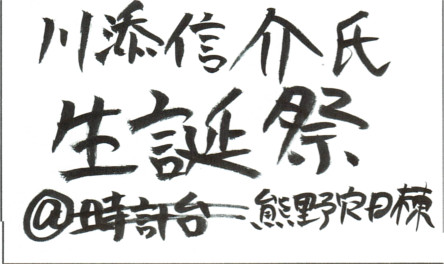 川添信介氏
生誕祭
@時計台 熊野寮B棟